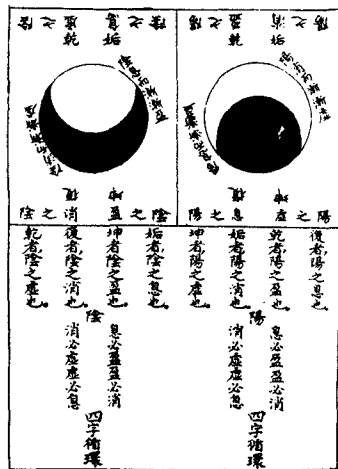 陽之消姤
陽之盈乾
陽之虛坤
陽之息復
陰之息姤
陰之虛乾
陰之盈坤
陰之消復
復者陽之息也。
乾者陽之盈也。
姤者陽之消也。
坤者陽之虛也。
陽
息必盈盈必消
消必虛虛必息
四字循環
姤者陰之息也。
坤者陰之盈也。
復者陰之消也。
乾者陰之虛也。
陰
息必盈盈必消
消必虛虛必息
四字循環